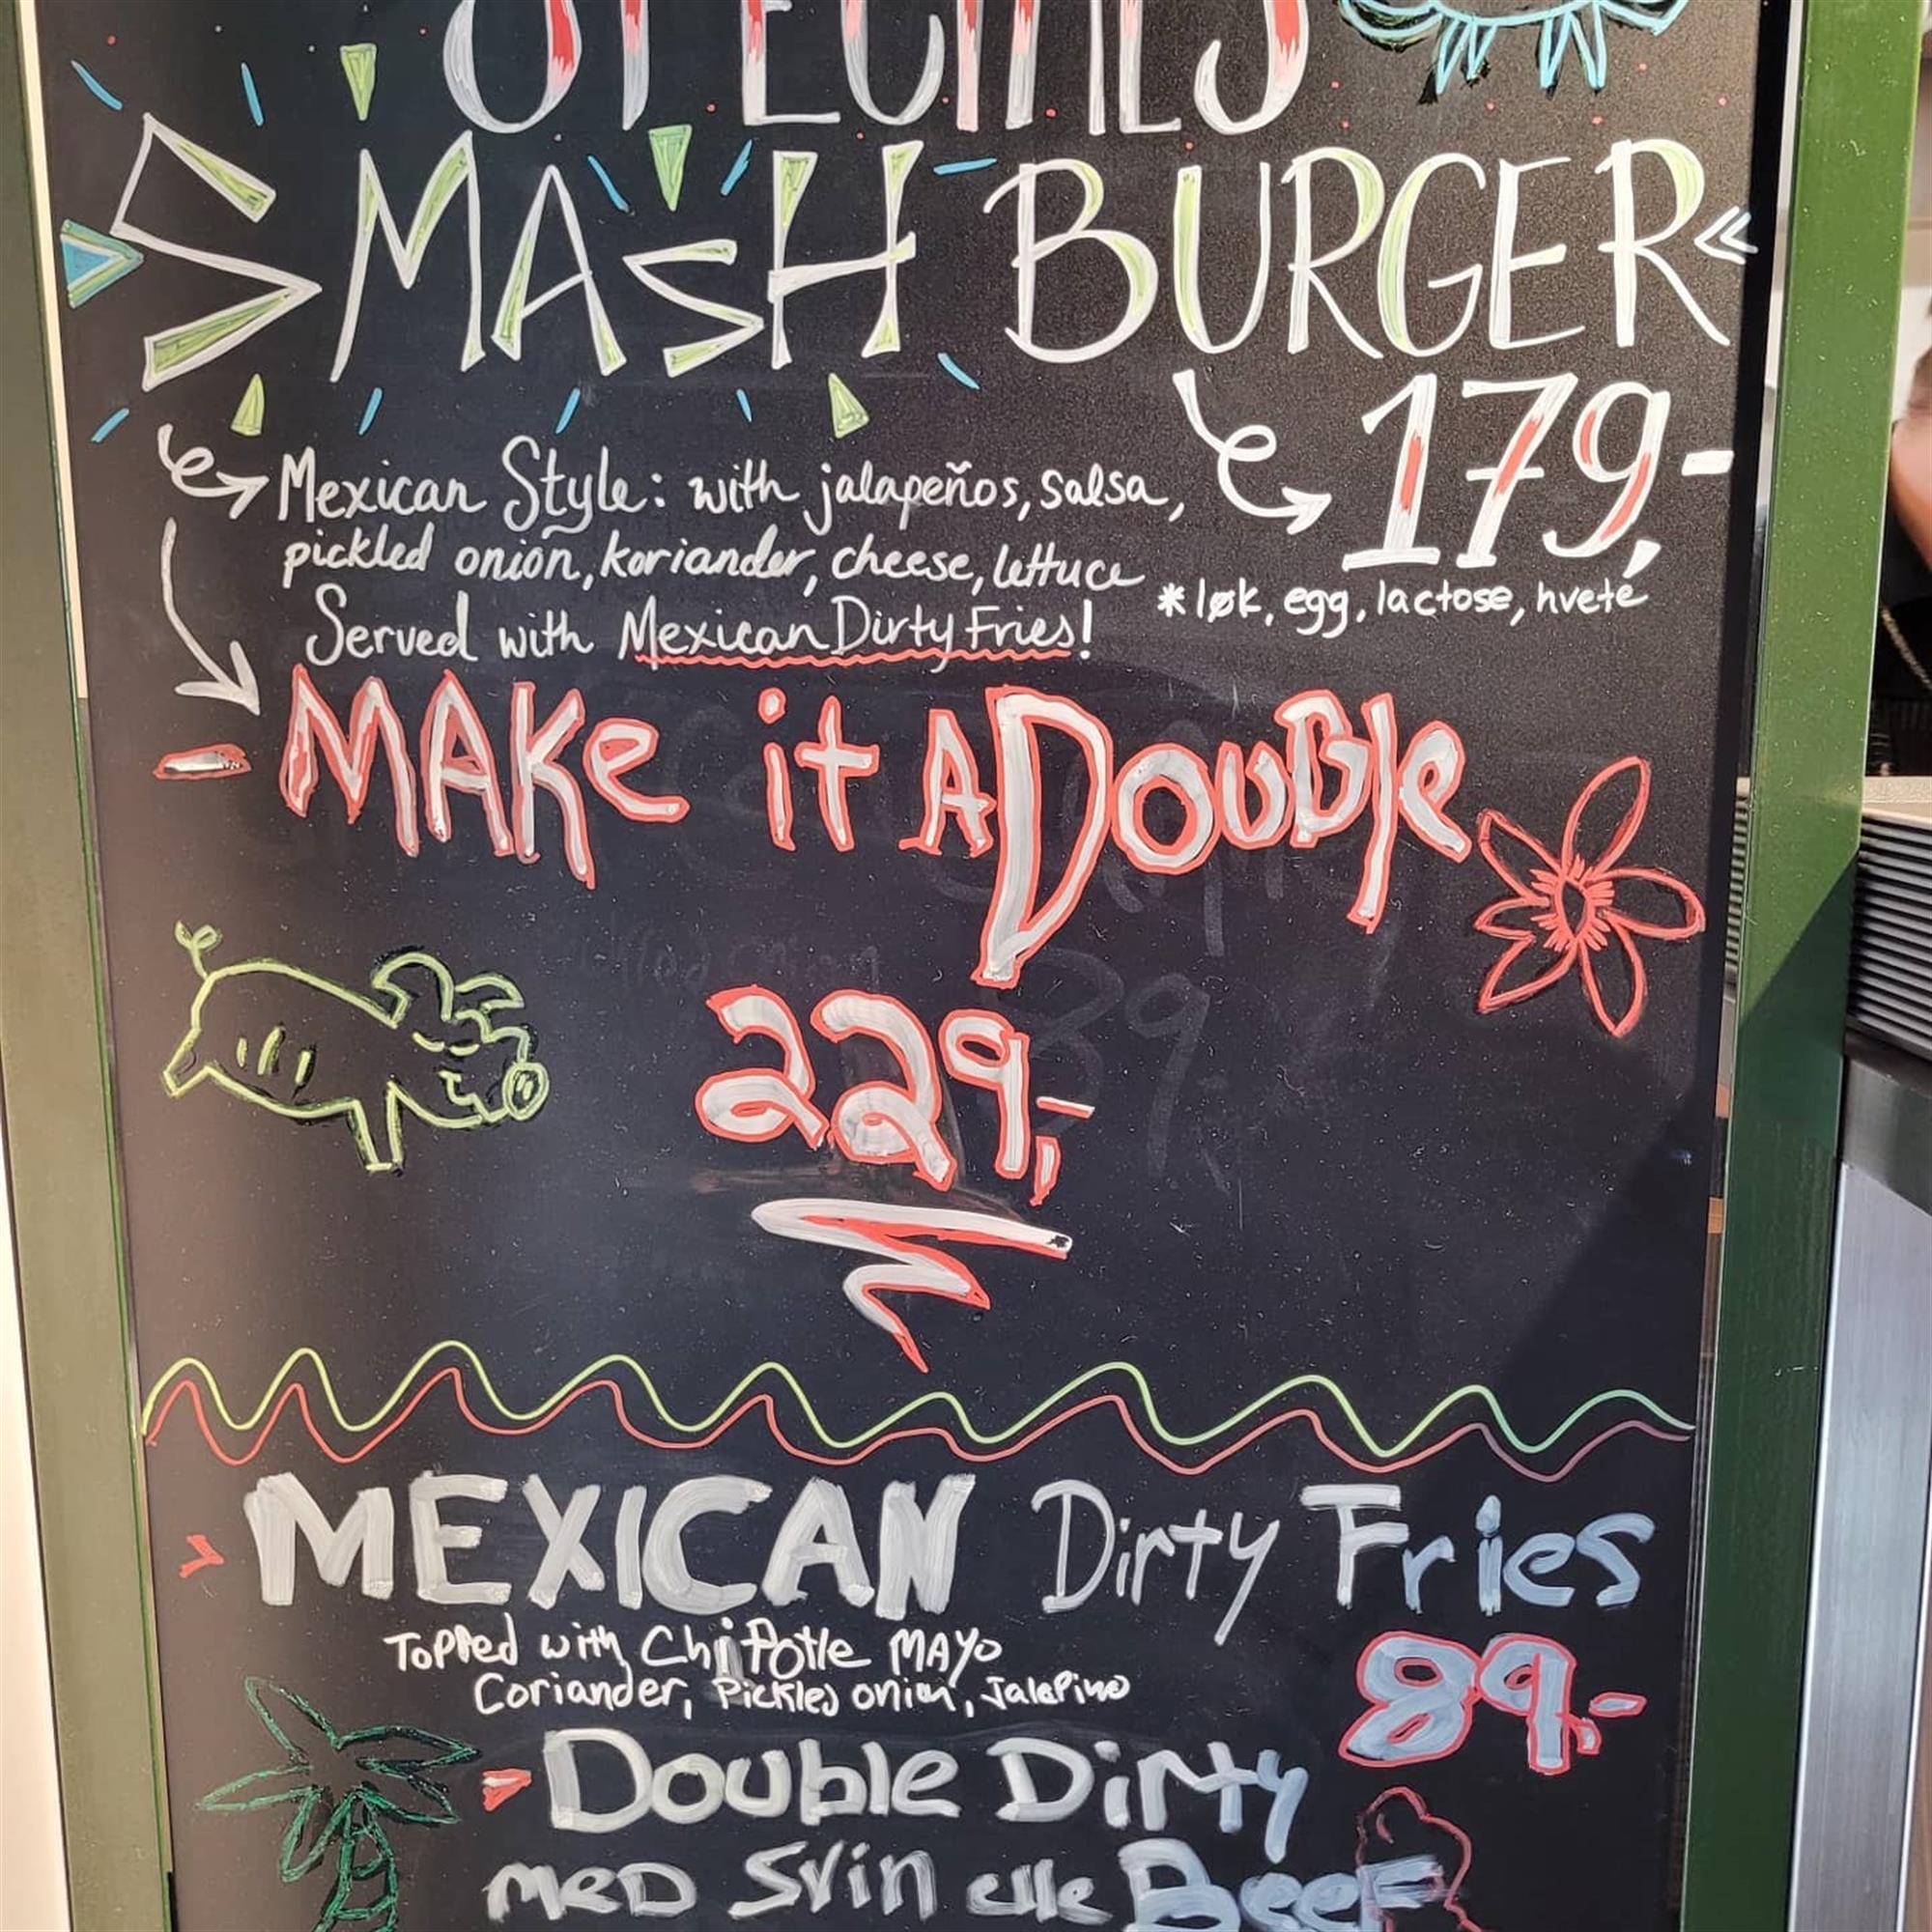 SPECIALS
SMASH BURGER
179,-
Mexican Style: with jalapeños, salsa,
pickled onion, koriander, cheese, lettuce
*løk, egg, lactose, hvete
Served with Mexican Dirty Fries!
- MAKe it A DouBle
229,-
MEXICAN Dirty Fries
Topped with Chipotle MAYo
Coriander, Pickled onion, Jalepino
89,-
Double Dirty
meD Svin elle Beef